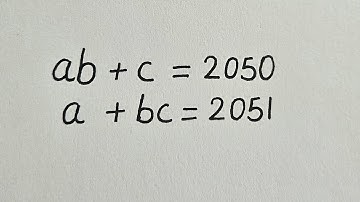 ab + c = 2050
a + bc = 2051